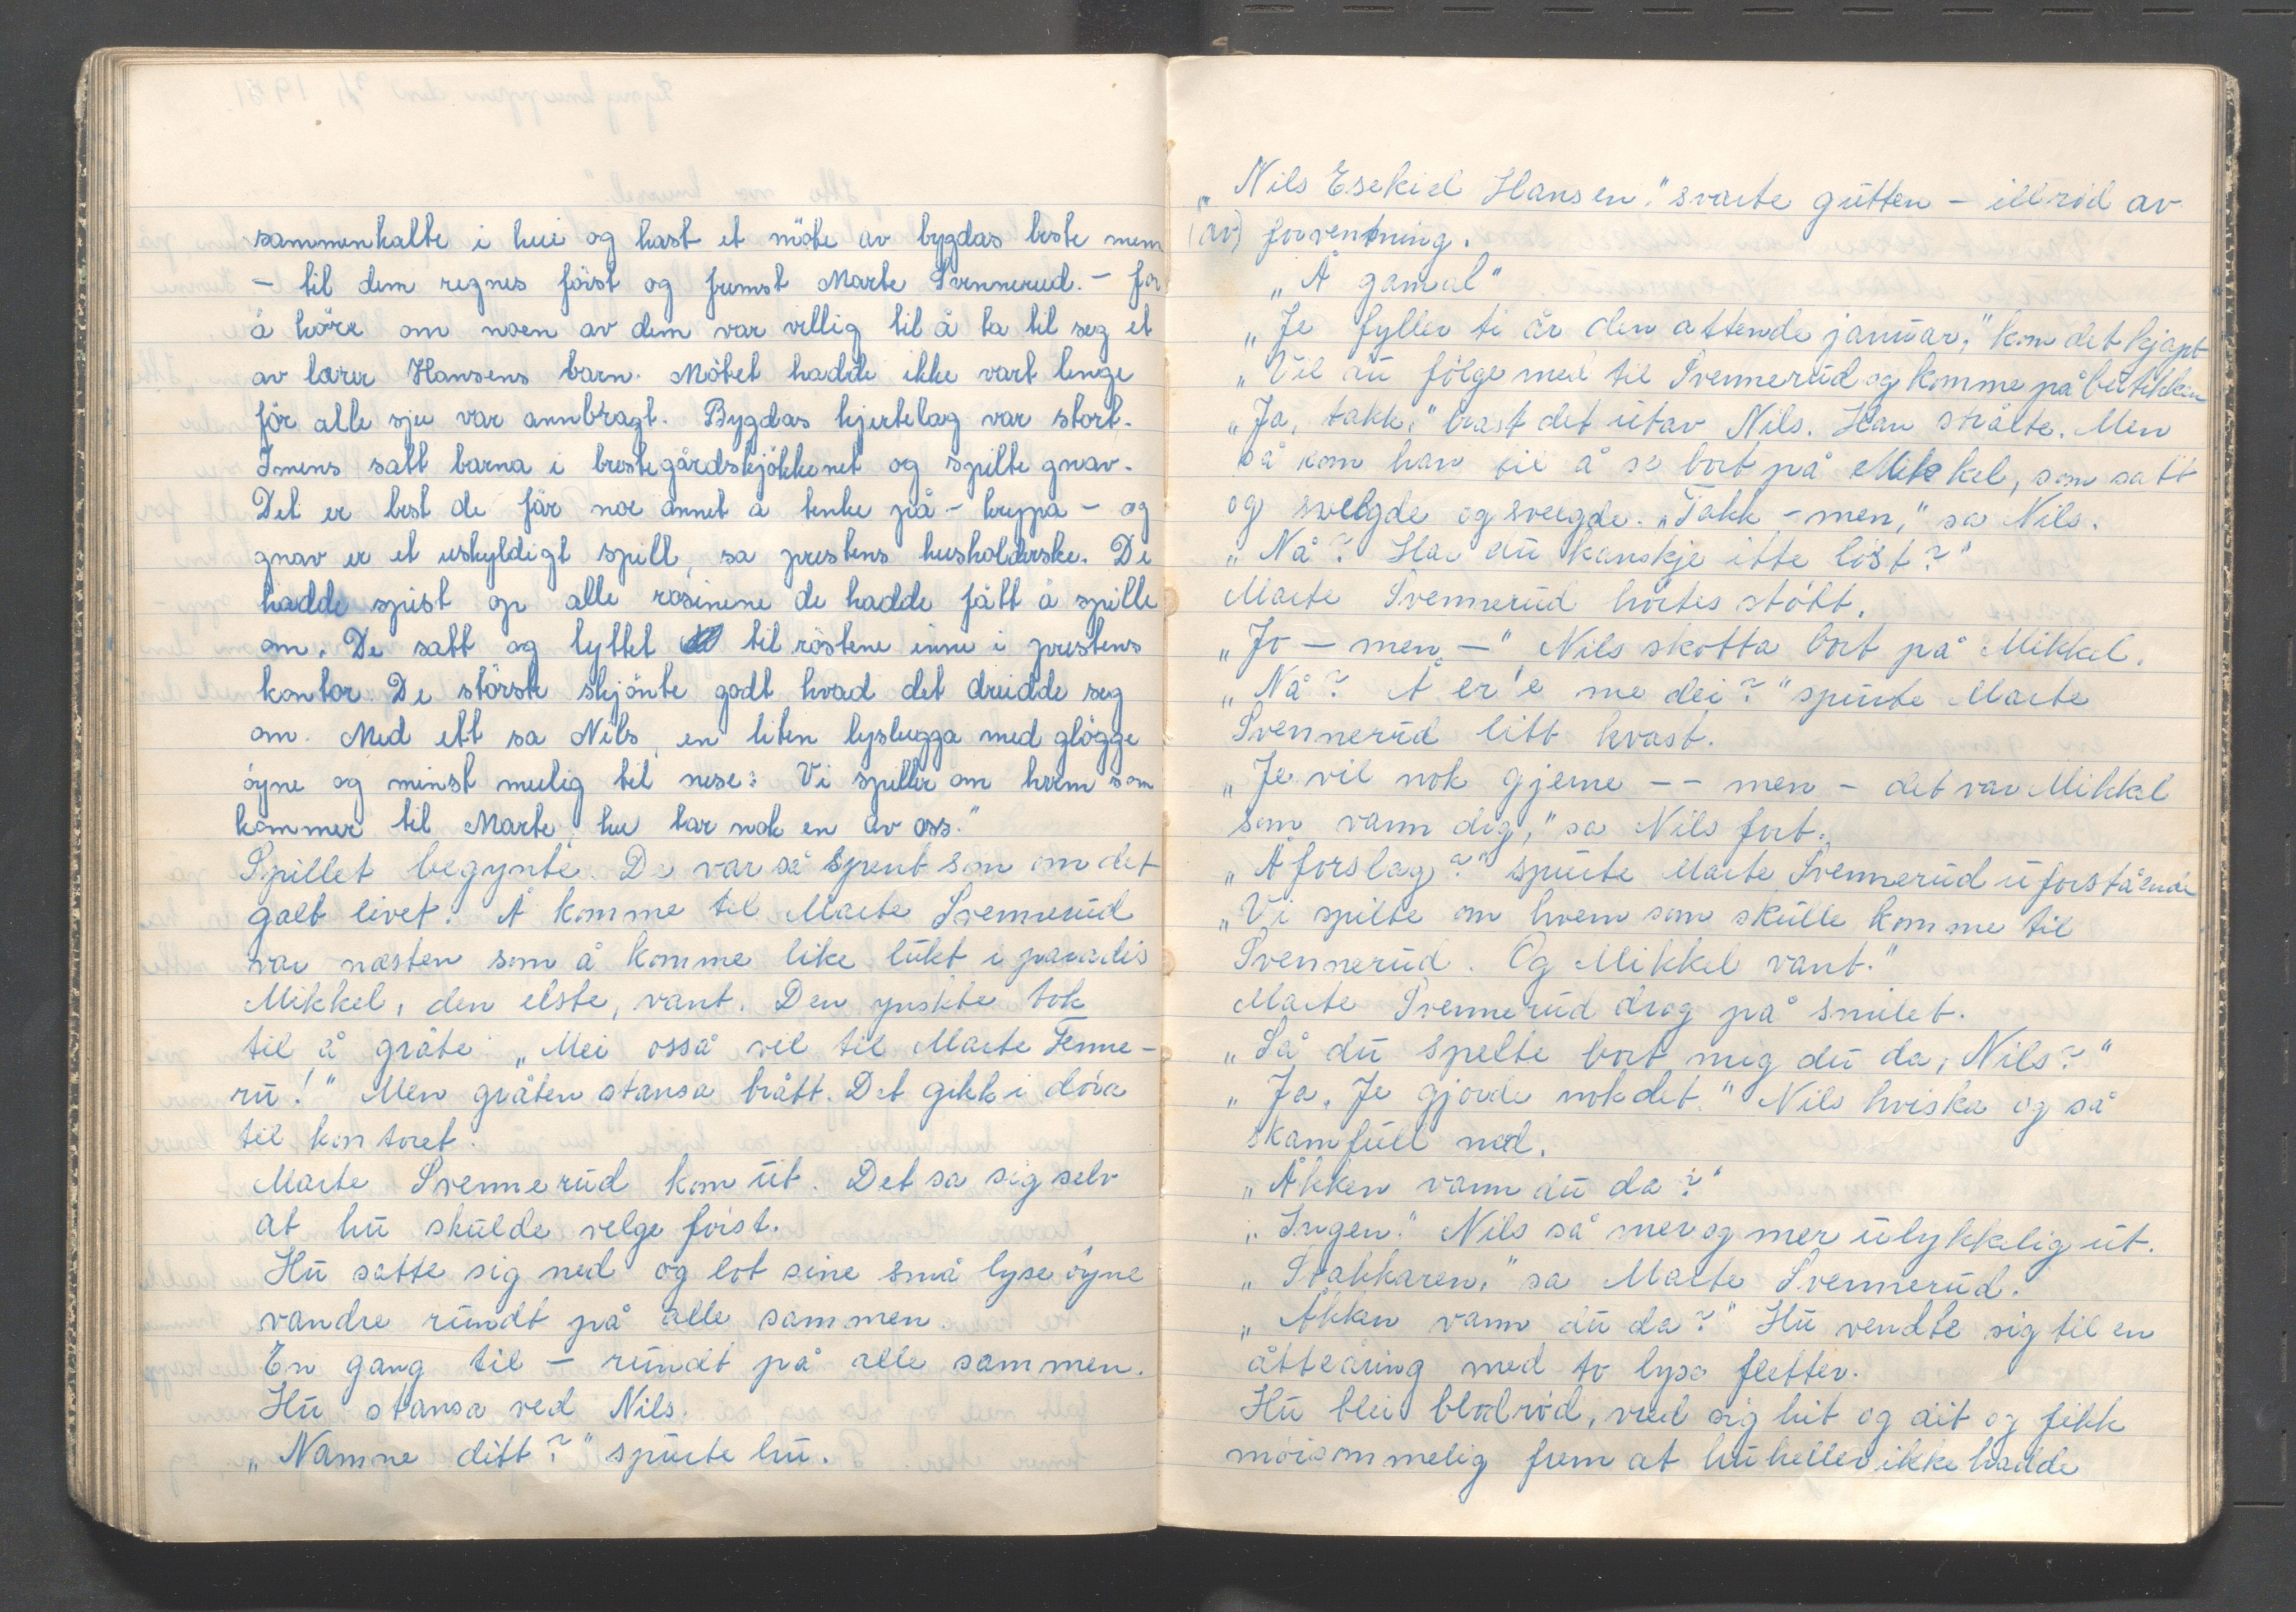 sammenkalte i hui og hast et möte av bygdas beste menn
- til dem regnes först og fremst Marte Svennerud. - for
å höre om noen av dem var villig til å ta til seg et
av lærer Hansens barn. Mötet hadde ikke vart lenge
för alle sju var annbragt. Bygdas hjertelag var stort.
Imens satt barna i prestegårdskjökkenet og spilte gnav.
Det er best de får noe annet å tenke på - kryppa - og
gnav er et uskyldigt spill, sa prestens husholderske. De
hadde spist op alle rosinene de hadde fått å spille
om. De satt og lyttet til röstene inne i prestens
kontor. De störste skjönte godt hvad det dreidde seg
om. Med ett sa Nils, en liten lyslugga med glögge
öyne og minst mulig til nese: Vi spiller om hvem som
kommer til Marte, hu tar nok en av oss."
Spillet begynte. De var så spent som om det
galt livet. Å komme til Marte Svennerud
var næsten som å komme like lukt i paradis
Mikkel, den elste, vant. Den yngste tok
til å gråte „Mei osså vil til Marte Fenne-
ru!" Men gråten stansa brått. Det gikk i döra
til kontoret.
Marte Svennerud kom ut. Det sa sig selv
at hu skulde velge först.
Hu satte sig ned og lot sine små lyse öyne
vandre rundt på alle sammen.
En gang til - rundt på alle sammen.
Hu stansa ved Nils.
„Namne ditt?" spurte hu.
„Nils Esekiel Hansen," svarte gutten - illröd av
(av) forventning.
„Å gamal"
„Je fyller ti år den attende januar," kom det kjapt
„Vil du fölge med til Svennerud og komme på butikken
„Ja, takk," brast det utav Nils. Han strålte. Men
så kom han til å se bort på Mikkel, som satt
og svelgde og svelgde. „Takk - men," sa Nils.
„Nå? Har du kanskje itte löst?"
Marte Svennerud hörtes stött.
„Jo - men -" Nils skotta bort på Mikkel.
„Nå? Å er'e me dei?" spurte Marte
Svennerud litt kvast.
„Je vil nok gjerne - - men - det var Mikkel
som vann deg," sa Nils fort.
„Å forslag?" spurte Marte Svennerud uforstående
„Vi spilte om hvem som skulle komme til
Svennerud. Og Mikkel vant."
Marte Svennerud drog på smilet.
„Så du spelte bort mig du da, Nils?"
„Ja. Je gjorde nok det." Nils hviska og så
skamfull ned.
„Åkken vann du da?"
„Ingen." Nils så mer og mer ulykkelig ut.
„Stakkaren," sa Marte Svennerud.
„Åkken vann du da?" Hu vendte sig til en
åtteåring med to lyse fletter.
Hu blei blodröd, vred sig hit og dit og fikk
möisommelig frem at hu heller ikke hadde